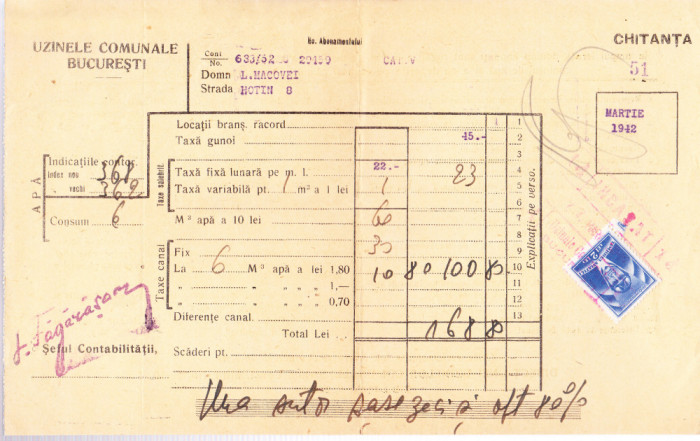 UZINELE COMUNALE
BUCUREŞTI
No. Abonamentului
CHITANŢA
51
Cont
No.
Domn L. MACOVEI
Strada HOTIN 8
MARTIE
1942
Locaţii branş. racord 1
Taxă gunoi 15.- 2
3
Taxe salubrit.
Taxă fixă lunară pe m. l. 22.- 23 4
Taxă variabilă pt. 1 m² a 1 lei 1 5
6
APĂ
Indicaţiile contor.
Index nou 368
" vechi 362
Consum 6
M³ apă a 10 lei 60 7
8
Taxe canal
Fix 30 9
La 6 M³ apă a lei 1,80 10 80 100 80 10
" " " " " 1,— 11
" " " " " 0,70 12
Diferenţe canal. 13
Total Lei 168 80
Scăderi pt.
Explicaţii pe verso.
Şeful Contabilităţii,
Una sută şasezeci şi opt 80%